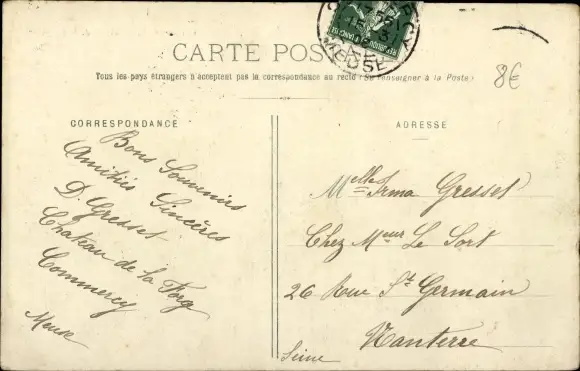 CARTE POS
Tous les pays étrangers n'acceptent pas la correspondance au recto (Se renseigner à la Poste)
8€
CORRESPONDANCE
Bons Souvenirs
Amitiés Sincères
D. Gresset
Chateau de la Forge
Commercy
Meuse
ADRESSE
Melle Irma Gresset
Chez Meur Le Sort
26 Rue St Germain
Nanterre
Seine
REPUBLIQUE FRANÇAISE
MEUSE